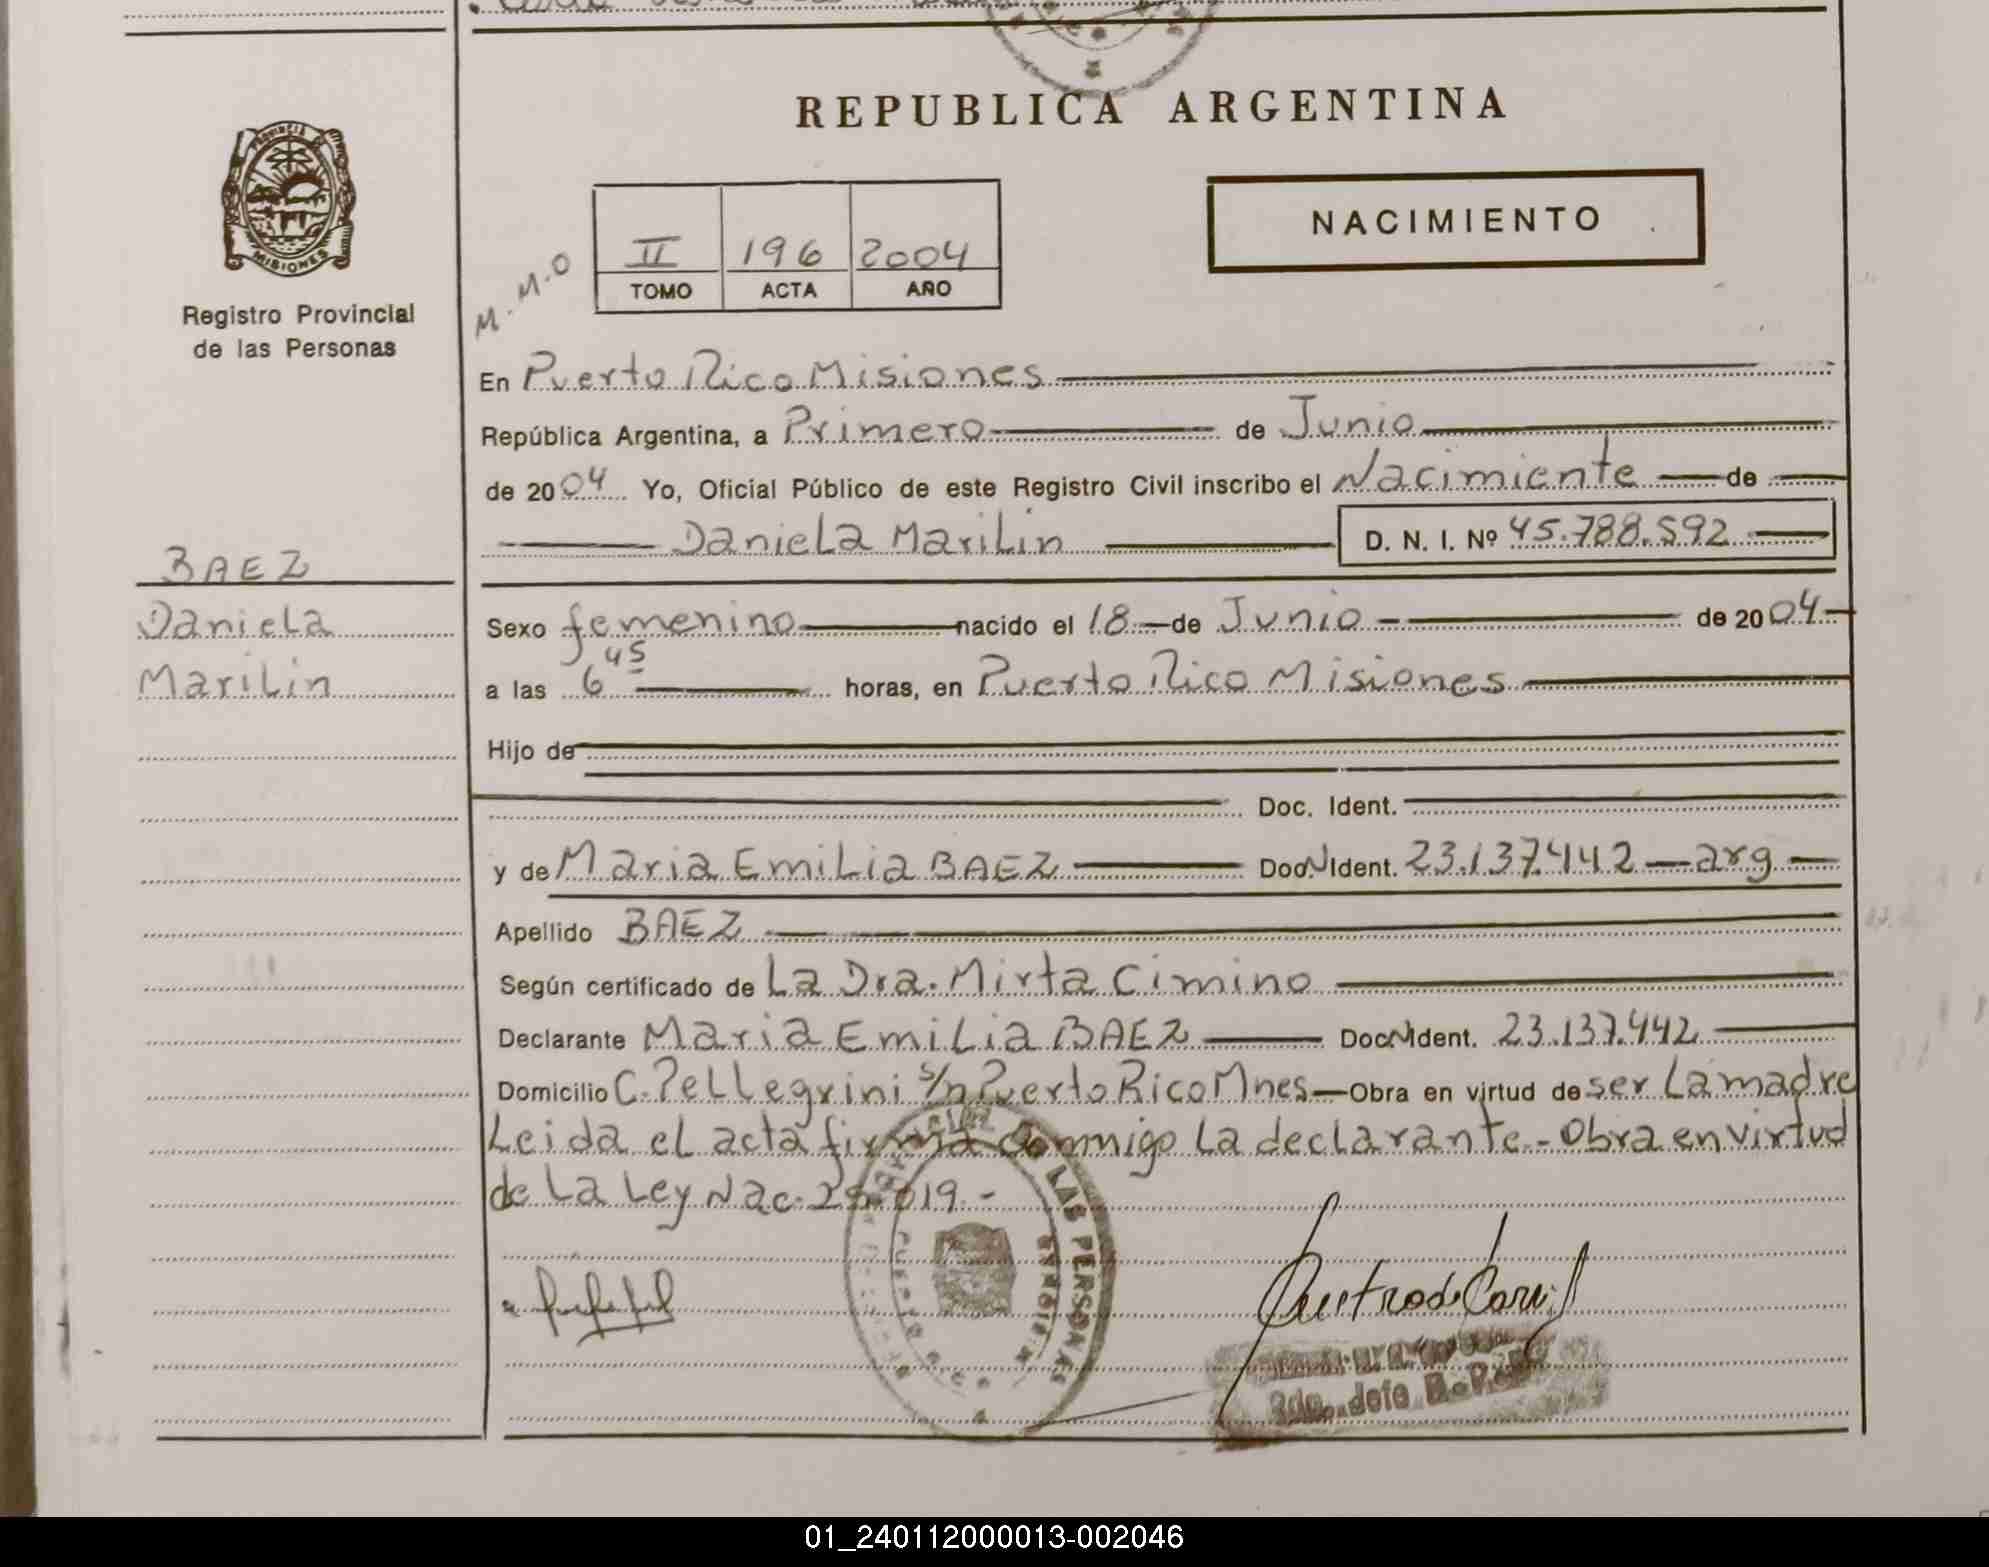 REPUBLICA ARGENTINA
PROVINCIA
MISIONES
Registro Provincial
de las Personas
NACIMIENTO
M.M.O
II 196 2004
TOMO ACTA AÑO
En Puerto Rico Misiones
República Argentina, a Primero de Junio
de 2004 Yo, Oficial Público de este Registro Civil inscribo el Nacimiente de
Daniela Marilin D. N. I. Nº 45.788.592
BAEZ
Daniela
Marilin
Sexo femenino nacido el 18 de Junio de 2004
a las 6 45 horas, en Puerto Rico Misiones
Hijo de
Doc. Ident.
y de Maria Emilia BAEZ Doc N Ident. 23.137.442 - arg
Apellido BAEZ
Según certificado de La Dra. Mirta Cimino
Declarante Maria Emilia BAEZ Doc N Ident. 23.137.442
Domicilio C. Pellegrini s/n Puerto Rico Mnes - Obra en virtud de ser La madre
Leida el acta firma conmigo La declarante.- Obra en virtud
de La Ley Nac. 25.019.-
LAS PERSONAS
01_240112000013-002046